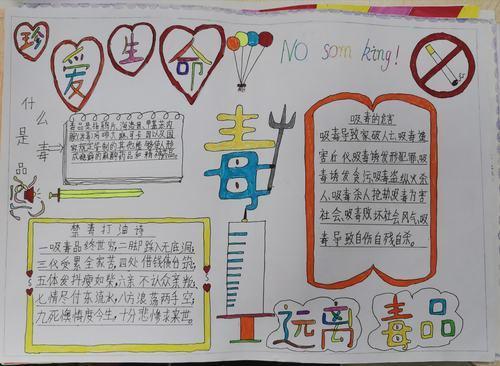 珍爱生命
NO som king!
什么是毒品
毒品是指鸦片、海洛因、甲基苯丙
胺(冰毒)、吗啡、大麻、可卡因以及国
家规定管制的其他能够使人形
成瘾癖的麻醉药品和精神药品
毒
吸毒的危害
吸毒导致家破人亡,吸毒遗
害后代,吸毒诱发形犯罪,吸
毒诱发贪污,吸毒盗纵火杀
人,吸毒杀人抢劫,吸毒为害
社会,吸毒败坏社会风气,吸
毒导致自伤自残自杀。
禁毒打油诗
一吸毒品终世穷,二脚踩入无底洞;
三代受累全家苦,四处借钱债台筑;
五体发抖瘦如柴,六亲不认众亲叛;
七情尽付东流水,八方漂荡两手空;
九死懊悔度今生,十分悲惨求来世。
远离毒品